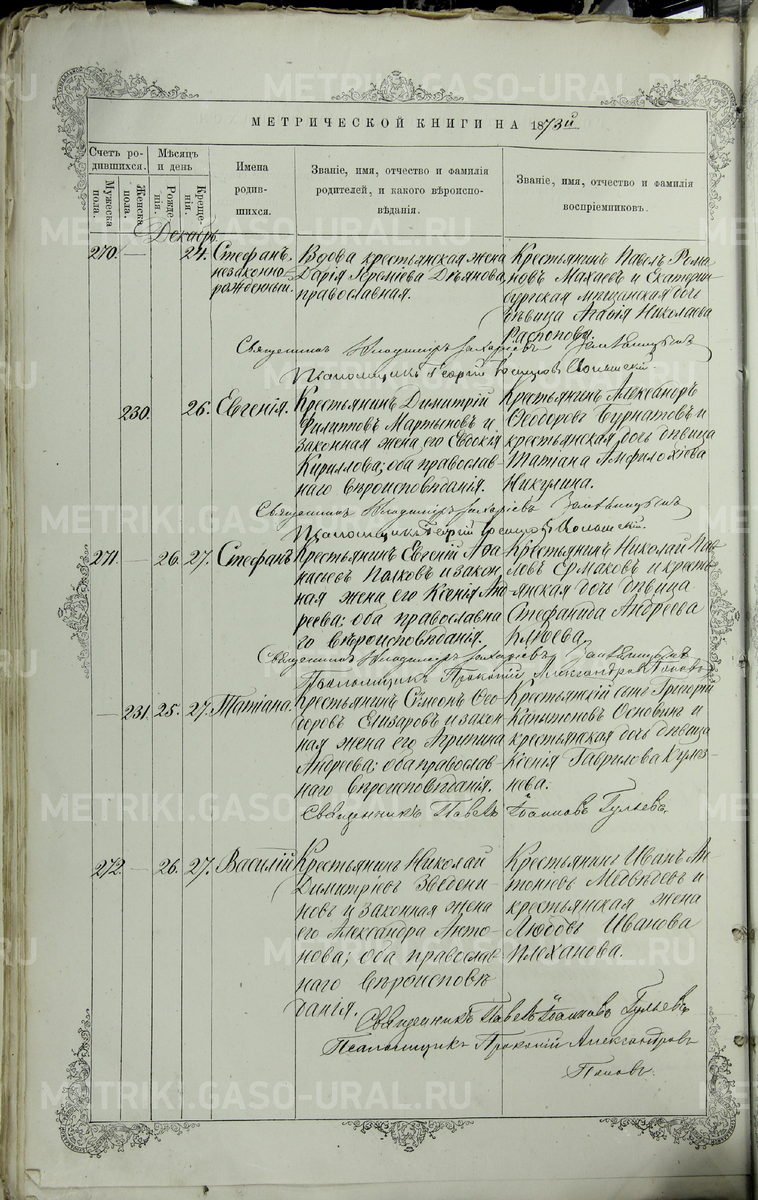 МЕТРИЧЕСКОЙ КНИГИ НА 1873й
Счетъ ро-
дившихся.
Мужеска
пола.
Женска
пола.
Мѣсяцъ
и день
Рожде-
нія.
Креще-
нія.
Имена
родив-
шихся.
Званіе, имя, отчество и фамилія
родителей, и какого вѣроиспо-
вѣданія.
Званіе, имя, отчество и фамилія
воспріемниковъ.
Декабрь
270. — 24. Стефанъ,
незаконно-
рожденный.
Вдова крестьянская жена
Дарія Іереміева Деянова,
православная.
Крестьянинъ Павелъ Рома
новъ Махаевъ и Екатерин-
бургская мѣщанская дочь
дѣвица Агаѳія Николаева
Распопова.
Священникъ Владиміръ Захаріевъ
Псаломщикъ Георгій
230. 26. Евгенія.
Крестьянинъ Димитрій
Филатовъ Мартыновъ и
законная жена его Евдокія
Кириллова; оба православ-
наго вѣроисповѣданія.
Крестьянинъ Александръ
Ѳеодоровъ Бурнатовъ и
крестьянская дочь дѣвица
Татіана Амфилохіева
Никулина.
Священникъ Владиміръ Захаріевъ
Псаломщикъ Георгій
271. — 26. 27. Стефанъ
Крестьянинъ Евгеній Аѳа
насьевъ Полковъ и закон
ная жена его Ксенія Ан
дреева; оба православна
го вѣроисповѣданія.
Крестьянинъ Николай Пав
ловъ Ермаковъ и кресть
янская дочь дѣвица
Стефанида Андреева
Клюева.
Священникъ Владиміръ Захаріевъ
Псаломщикъ Прокопій Александровъ Поповъ
— 231. 25. 27. Татіана.
Крестьянинъ Сѵмеонъ Ѳео-
доровъ Елизаровъ и закон
ная жена его Агрипина
Андреева; оба православ-
наго вѣроисповѣданія.
Крестьянскій сынъ Григорій
Капитоновъ Основинъ и
крестьянская дочь дѣвица
Ксенія Гаврилова Кузне-
нева.
Священникъ Павелъ Іоанновъ Гуляевъ
272. — 26. 27. Василій
Крестьянинъ Николай
Димитріевъ Звѣдени-
новъ и законная жена
его Александра Анто-
нова; оба православ
наго вѣроисповѣ
данія.
Крестьянинъ Иванъ Ан-
тоніевъ Медвѣдевъ и
крестьянская жена
Любовь Иванова
Плеханова.
Священникъ Павелъ Іоанновъ Гуляевъ
Псаломщикъ Прокопій Александровъ
Поповъ.
METRIKI.GASO-URAL.RU